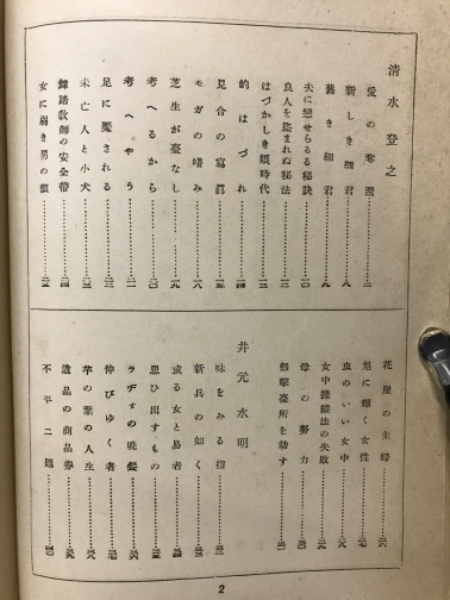 清水登之
愛の奪還……二
新しき細君……八
舊き細君……九
夫に戀せらるる秘訣……一〇
良人を盜まれぬ秘法……一二
はづかしき頃時代……一三
的はづれ……一四
見合の寫眞……一五
モガの嗜み……一八
芝生が臺なし……一九
考へるから……二〇
考へやう……二一
足に魔される……二二
未亡人と小犬……二三
舞踏敎師の安全帶……二四
女に弱き男の顏……二五
花屋の主婦……二六
旭に輝く女性……二七
虫のいい女中……二八
女中操縱法の失敗……二九
母の努力……三〇
無擊臺所を劫す……三一
井元水明
味をみる指……三二
新兵の如く……三三
或る女と易者……三四
思ひ出すもの……三五
ラヂオの晚餐……三六
伸びゆく者……三七
芋の葉の人生……三八
遺品の商品券……三九
不平二題……四〇
2